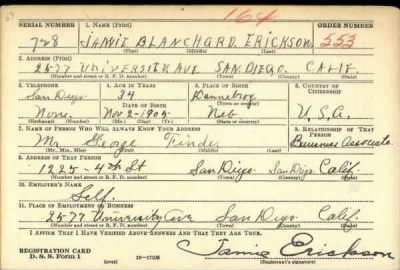 164
SERIAL NUMBER 1. NAME (Print) ORDER NUMBER
728 JAMIE BLANCHARD ERICKSON 553
(First) (Middle) (Last)
2. ADDRESS (Print)
2577 UNIVERSITY AVE SAN DIEGO CALIF.
(Number and street or R. F. D. number) (Town) (County) (State)
3. TELEPHONE 4. AGE IN YEARS 5. PLACE OF BIRTH 6. COUNTRY OF CITIZENSHIP
San Diego 34 Dannebrog
DATE OF BIRTH (Town or county)
None Nov. 2-1905 Neb U.S.A.
(Exchange) (Number) (Mo.) (Day) (Yr.) (State or country)
7. NAME OF PERSON WHO WILL ALWAYS KNOW YOUR ADDRESS 8. RELATIONSHIP OF THAT PERSON
Mr. George Tinder Business Associate
(Mr., Mrs., Miss) (First) (Middle) (Last)
9. ADDRESS OF THAT PERSON
1225 4th St San Diego San Diego Calif
(Number and street or R. F. D. number) (Town) (County) (State)
10. EMPLOYER'S NAME
Self.
11. PLACE OF EMPLOYMENT OR BUSINESS
2577 University Ave San Diego Calif.
(Number and street or R. F. D. number) (Town) (County) (State)
I AFFIRM THAT I HAVE VERIFIED ABOVE ANSWERS AND THAT THEY ARE TRUE.
REGISTRATION CARD
D. S. S. Form 1 (over) 16—17105 Jamie Erickson
(Registrant's signature)